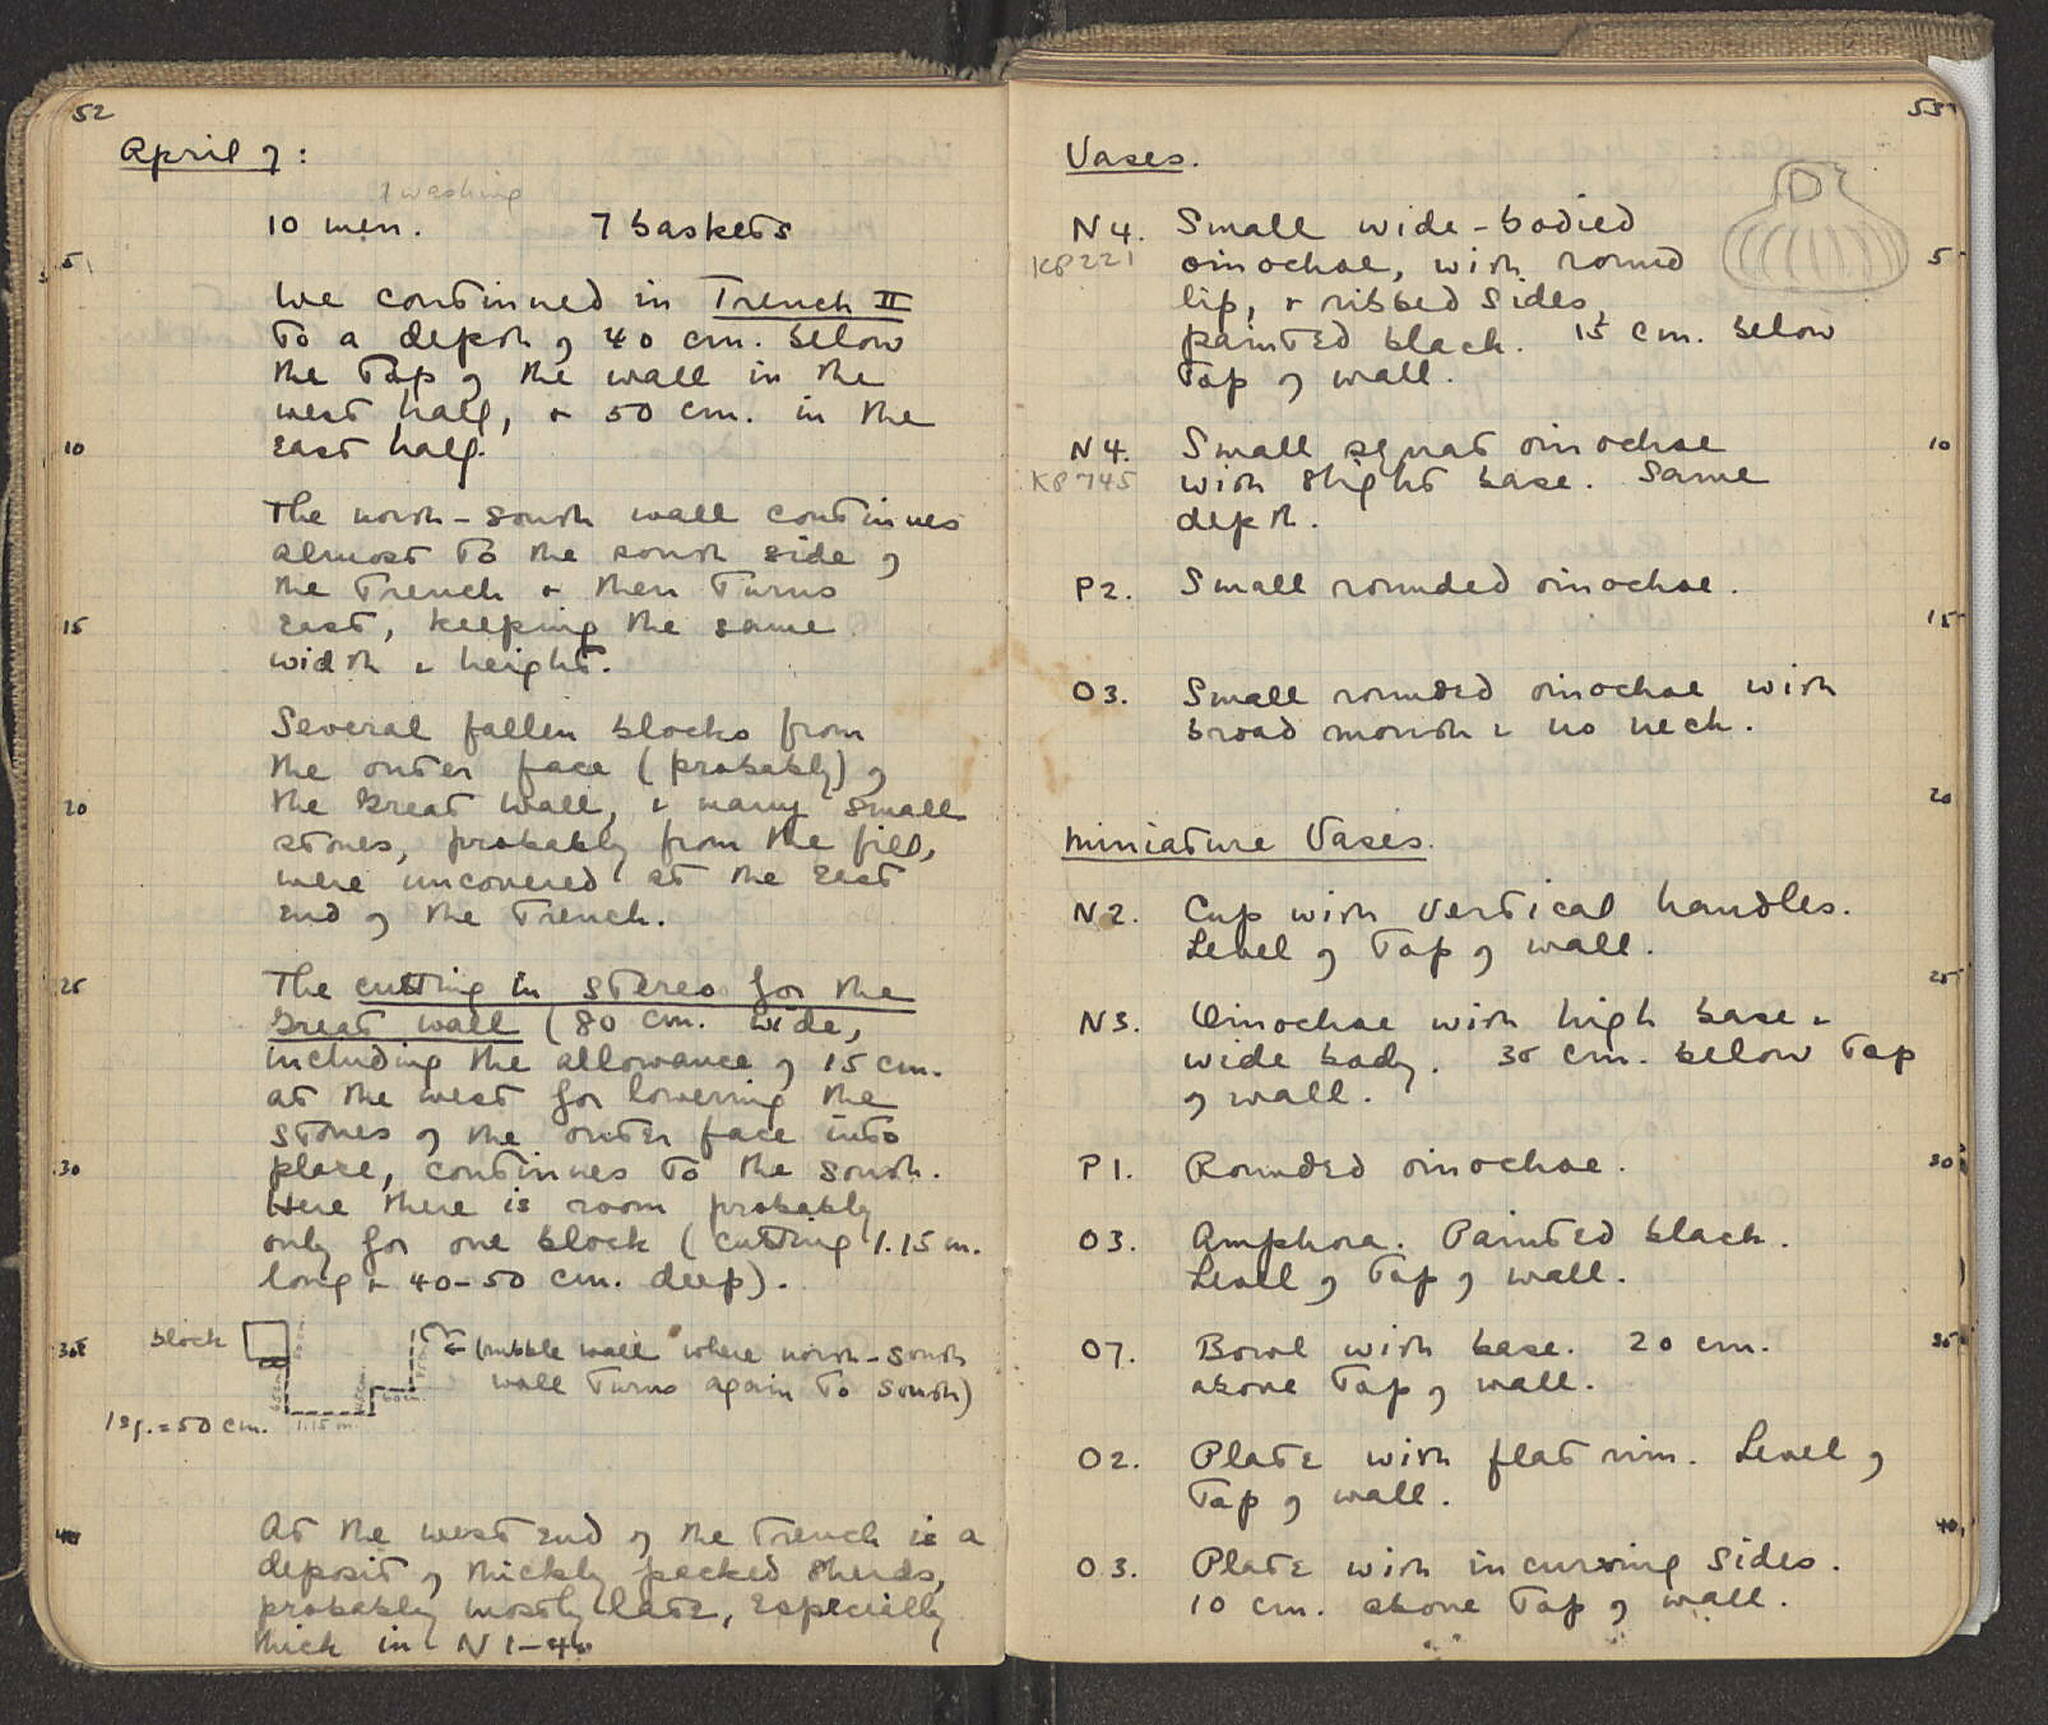 52
April 7:
1 washing
10 men. 7 baskets
5
We continued in Trench II
to a depth of 40 cm. below
the top of the wall in the
west half, + 50 cm. in the
10 east half.
The north-south wall continues
almost to the south side of
the trench + then turns
15 east, keeping the same
width + height.
Several fallen blocks from
the outer face (probably) of
20 the Great Wall, + many small
stones, probably from the fill,
were uncovered at the east
end of the trench.
25 The cutting in stereo for the
Great Wall (80 cm. wide,
including the allowance of 15 cm.
at the west for lowering the
stones of the outer face into
30 place, continues to the south.
Here there is room probably
only for one block (cutting 1.15 m.
long + 40-50 cm. deep).
35 block ← (rubble wall where north-south
wall turns again to south)
1 sq. = 50 cm. 1.15 m.
40 At the west end of the trench is a
deposit of thickly packed sherds,
probably mostly late, especially
thick in N 1-4.
53
Vases.
N4. Small wide-bodied
KP221 oinochoe, with round 5
lip, + ribbed sides,
painted black. 15 cm. below
top of wall.
N4. Small squat oinochoe 10
KP745 with slight base. Same
depth.
P2. Small rounded oinochoe.
15
O3. Small rounded oinochoe with
broad mouth + no neck.
20
Miniature Vases.
N2. Cup with vertical handles.
Level of top of wall.
25
N3. Oinochoe with high base +
wide body. 35 cm. below top
of wall.
P1. Rounded oinochoe. 30
O3. Amphora. Painted black.
Level of top of wall.
O7. Bowl with base. 20 cm. 35
above top of wall.
O2. Plate with flat rim. Level of
top of wall.
40
O3. Plate with incurving sides.
10 cm. above top of wall.